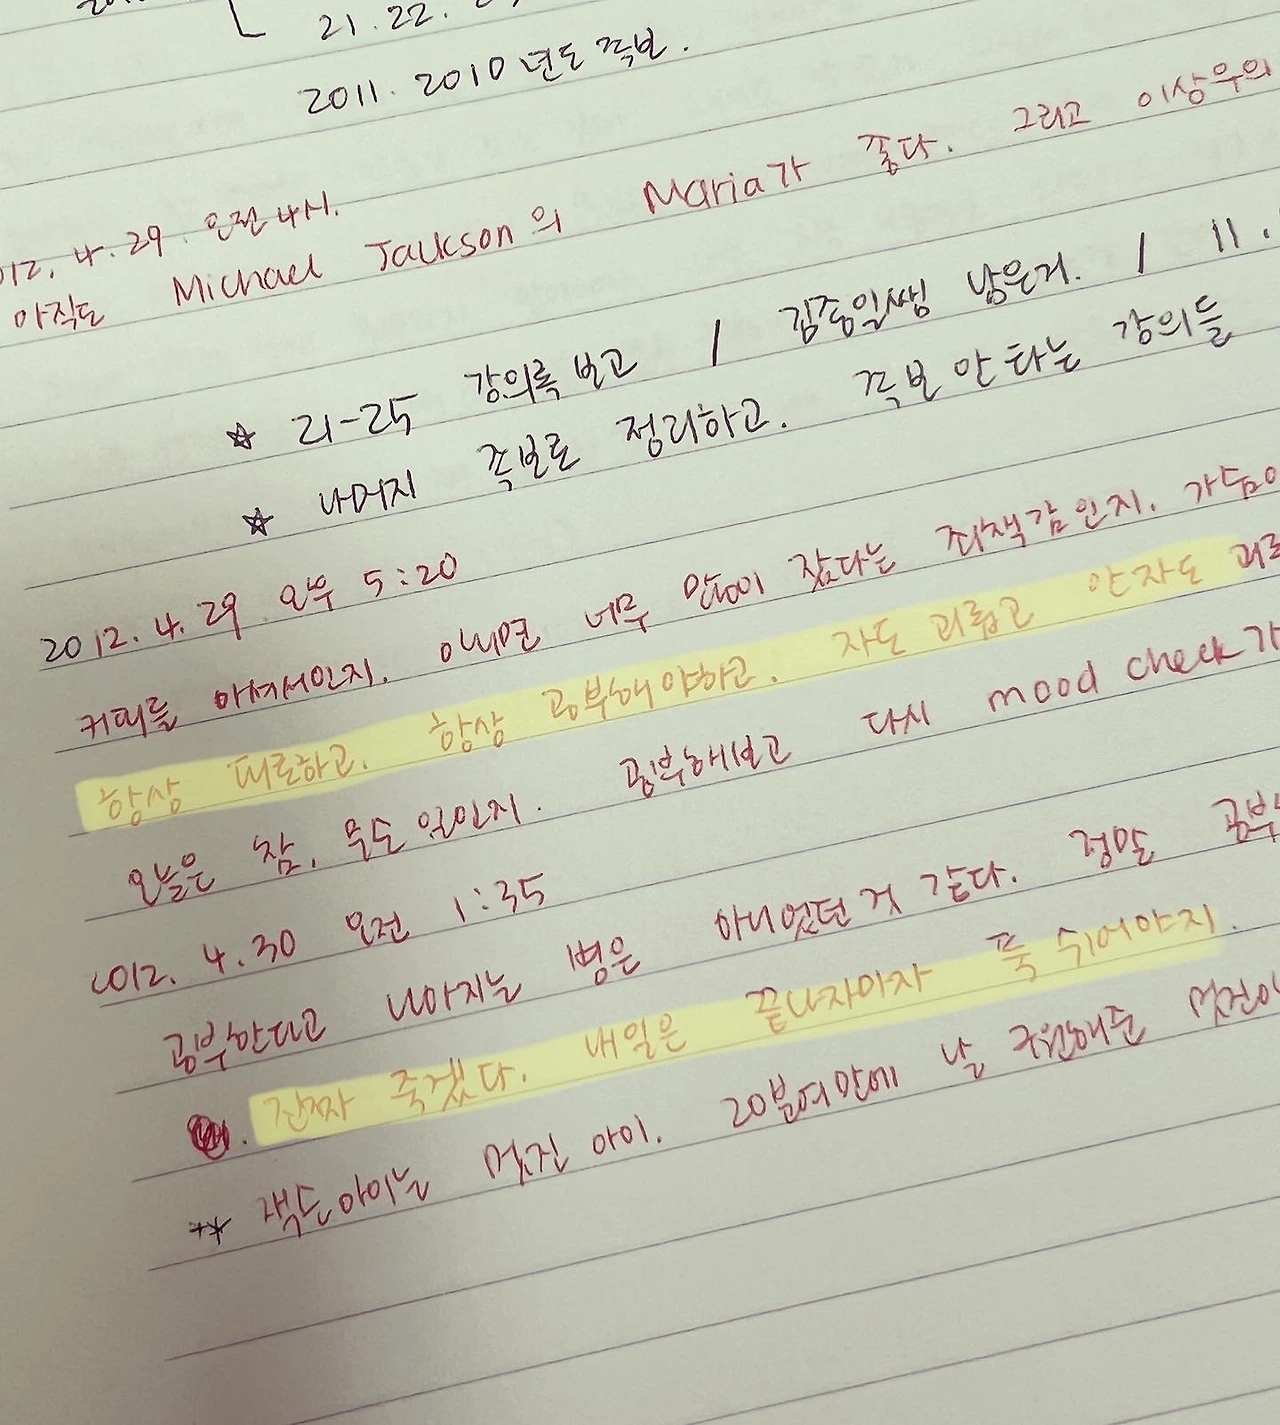 21.22.
2011. 2010년도 족보.
012. 4. 29. 오전 4시.
아직도 Michael Jackson의 Maria가 좋다. 그리고 이상우의
☆ 21-25 강의록 보고 / 김종일쌤 남은거. / 11.
☆ 나머지 족보로 정리하고. 족보 안 타는 강의들
2012. 4. 29. 오후 5:20
커피를 마셔서인지. 아니면 너무 많이 잤다는 죄책감인지. 가슴이
항상 피로하고. 항상 공부해야하고. 자도 괴롭고 안자도 괴로
오늘은 참. 무도일인지. 공부해보고 다시 mood check가
2012. 4. 30 오전 1:35
공부한다고 나아지는 병은 아니었던 것 같다. 정말 공부
진짜 죽겠다. 내일은 끝나자마자 푹 쉬어야지.
** 잭슨아이는 멋진 아이. 20분여만에 날 구원해준 멋진아